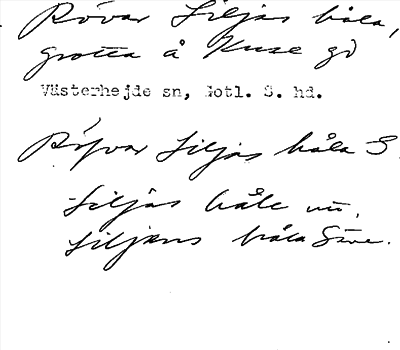 Rövar Liljas håla,
grotta å Kuse gd
Västerhejde sn, Gotl. S. hd.
Röyvar Liljas håla S
Liljas håle
Liljans håla